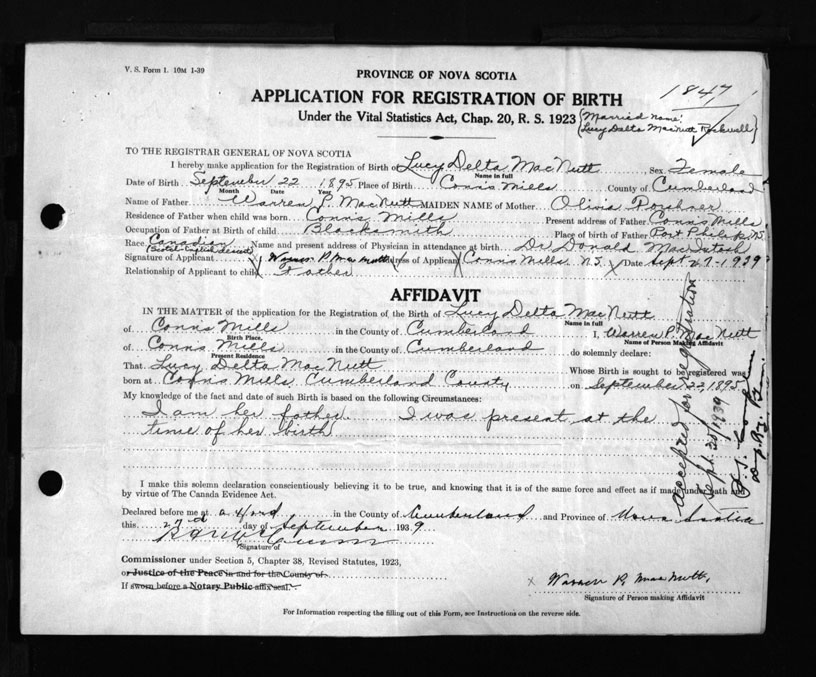 V. S. Form 1. 10M 1-39
PROVINCE OF NOVA SCOTIA
1847
APPLICATION FOR REGISTRATION OF BIRTH
Under the Vital Statistics Act, Chap. 20, R. S. 1923
(Married name:
Lucy Delta MacNutt Rockwell)
TO THE REGISTRAR GENERAL OF NOVA SCOTIA
I hereby make application for the Registration of Birth of Lucy Delta MacNutt Sex Female
Name in full
Date of Birth September 22 1895 Place of Birth Conn's Mills County of Cumberland
Month Date Year
Name of Father Warren P. MacNutt MAIDEN NAME of Mother Olivia
Residence of Father when child was born Conn's Mills Present address of Father Conn's Mills
Occupation of Father at Birth of child Blacksmith Place of birth of Father Port Philip N.S.
Race Canadian Name and present address of Physician in attendance at birth Dr. Donald MacIntosh
Signature of Applicant X Warren P. MacNutt Address of Applicant X Conn's Mills N.S. X Date Sept 27-1939
Relationship of Applicant to child Father
AFFIDAVIT
IN THE MATTER of the application for the Registration of the Birth of Lucy Delta MacNutt
Name in full
of Conn's Mills in the County of Cumberland I, Warren P. MacNutt
Birth Place, Name of Person Making Affidavit
of Conn's Mills in the County of Cumberland do solemnly declare:
Present Residence
That Lucy Delta MacNutt Whose Birth is sought to be registered was
born at Conn's Mills, Cumberland County on September 22, 1895
My knowledge of the fact and date of such Birth is based on the following Circumstances:
I am her father I was present at the
time of her birth
Accepted for registration
Sept. 30/1939
I make this solemn declaration conscientiously believing it to be true, and knowing that it is of the same force and effect as if made under oath and
by virtue of The Canada Evidence Act.
Declared before me at in the County of Cumberland and Province of Nova Scotia
this 27th day of September 1939
Signature of
Commissioner under Section 5, Chapter 38, Revised Statutes, 1923,
or Justice of the Peace in and for the County of
If sworn before a Notary Public affix seal.
X Warren P. MacNutt
Signature of Person making Affidavit
For Information respecting the filling out of this Form, see Instructions on the reverse side.